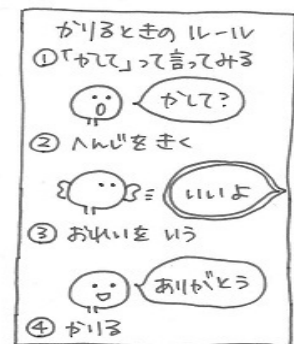 かりるときのルール
①「かして」って言ってみる
かして?
② へんじを きく
いいよ
③ おれいを いう
ありがとう
④ かりる